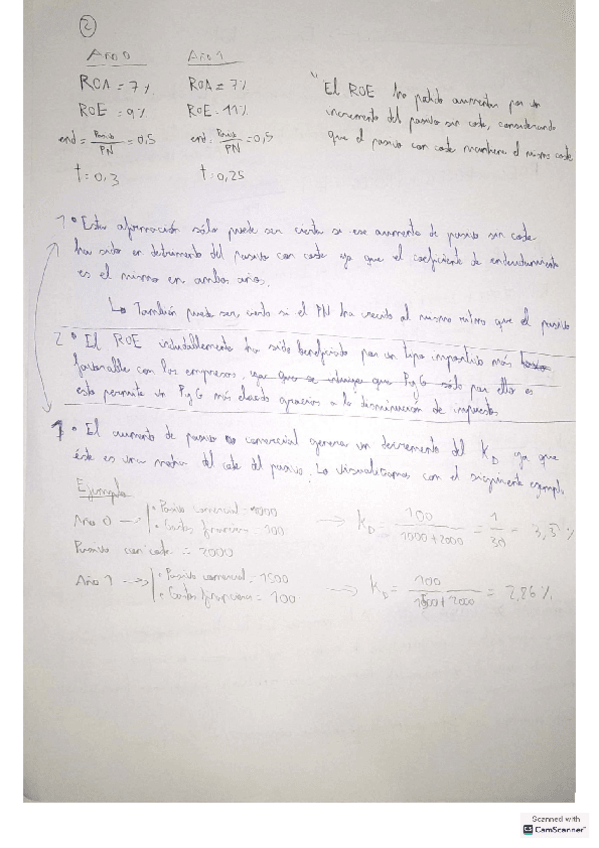 2
Año 0 Año 1
ROA = 7% ROA = 7%
ROE = 9% ROE = 11%
end = Pasivo/PN = 0,5 end = Pasivo/PN = 0,5
t = 0,3 t = 0,25
"El ROE ha podido aumentar por un
incremento del pasivo sin coste, considerando
que el pasivo con coste mantiene el mismo coste
1 • Esta afirmación sólo puede ser cierta si ese aumento de pasivo sin coste
ha sido en detrimento del pasivo con coste ya que el coeficiente de endeudamiento
es el mismo en ambos años.
↳ También puede ser cierto si el PN ha crecido al mismo ritmo que el pasivo
2 • El ROE indudablemente ha sido beneficiado por un tipo impositivo más
favorable con las empresas, ya que se PyG sólo por ello
esto permite un PyG más elevado gracias a la disminución de impuestos
1 • El aumento de pasivo comercial genera un decremento del KD ya que
éste es una media del coste del pasivo. Lo visualizamos con el siguiente ejemplo
Ejemplo
Año 0 → • Pasivo comercial = 1000
• Gastos financieros = 100 → KD = 100/(1000+2000) = 1/30 = 3,3%
Pasivo con coste = 2000
Año 1 → • Pasivo comercial = 1500
• Gastos financieros = 100 → KD = 100/(1500+2000) = 2,86%
Scanned with
CS CamScanner